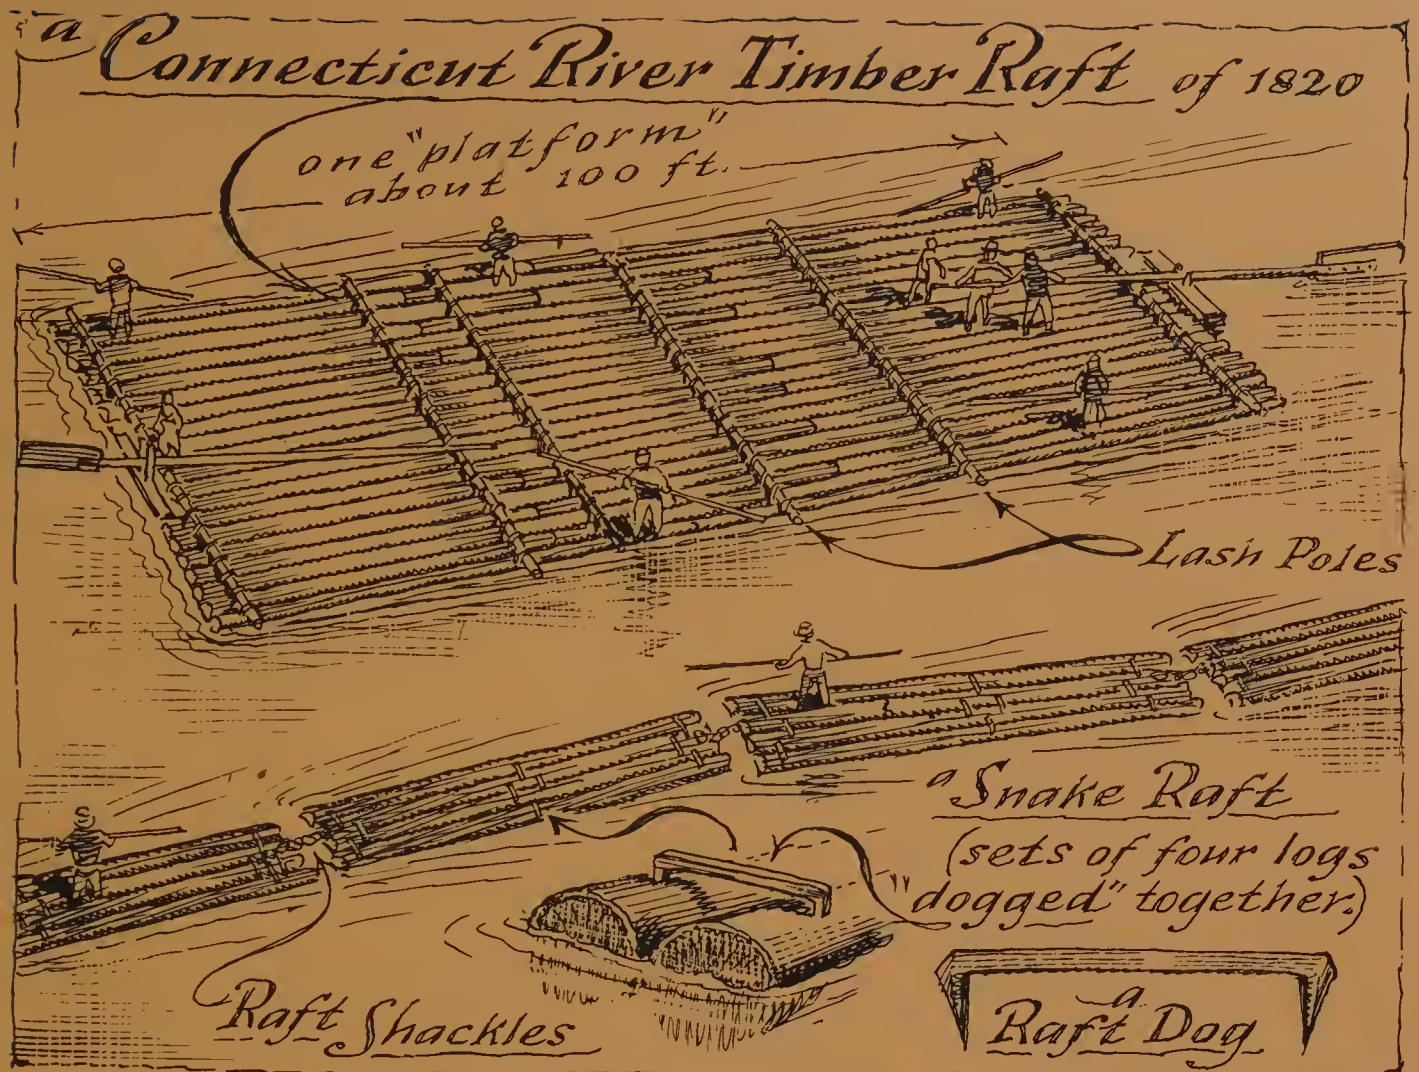 a Connecticut River Timber Raft of 1820
one "platform"
about 100 ft.
Lash Poles
a Snake Raft
(sets of four logs
"dogged" together.)
Raft Shackles
a
Raft Dog